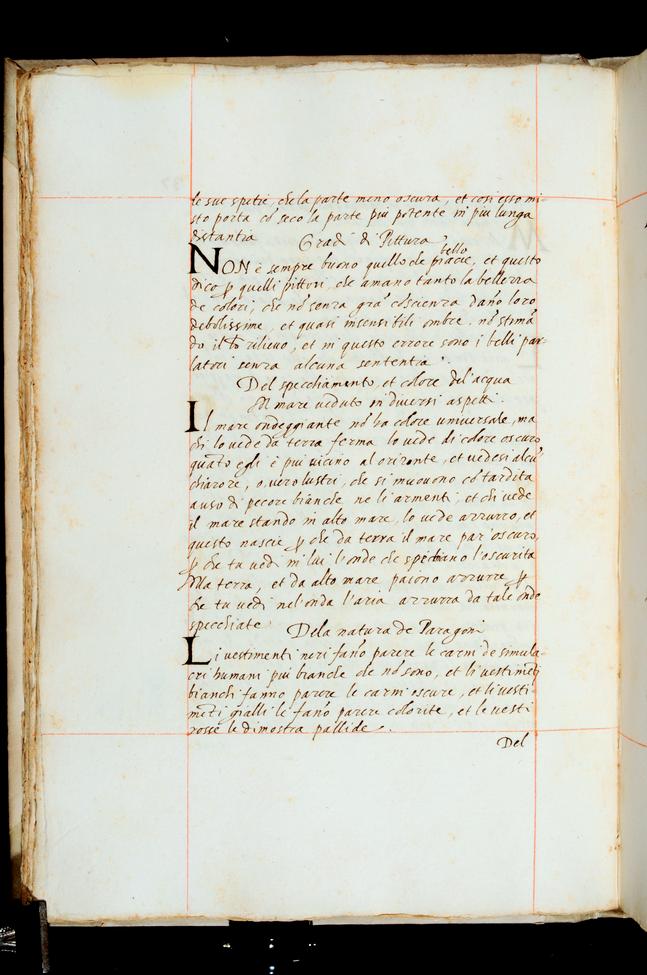 le sue spetie, che la parte meno oscura, et così esso mi-
sto porta cō seco la parte piu potente in piu lunga
distantia
Gradi di Pittura
bello
NON è sempre buono quello che piacie, et questo
dico ꝑ quelli pittori, che amano tanto la bellezza
de colori, che nō senza grā cōscienza dāno loro
debolissime, et quasi insensibili ombre, nō stimā
do il lō rilievo, et in questo errore sono i belli par-
latori senza alcuna sententia.
Del specchiamento, et colore del'acqua
del mare veduto in diversi aspetti.
Il mare ondeggiante nō ha colore universale, ma
chi lo vede da terra ferma lo vede di colore oscuro
quāto egli è piu vicino al orizonte, et vedesi alcū
chiarore, o vero lustri, che si muovono cō tardita
a uso di pecore bianche ne li armenti, et chi vede
il mare stando in alto mare, lo vede azzurro, et
questo nascie ꝑ che da terra il mare par'oscuro,
ꝑ che tu vedi in lui l'onde che spechiano l'oscurita
della terra, et da alto mare paiono azzurre ꝑ
che tu vedi nel'onda l'aria azzurra da tale onde
specchiate
Dela natura de Paragoni
Li vestimenti neri fāno parere le carni de simula-
cri humani piu bianche che nō sono, et li vestimēti
bianchi fanno parere le carni oscure, et li vesti-
mēti gialli le fāno parere colorite, et le vesti
rosse le dimostra pallide.
Del